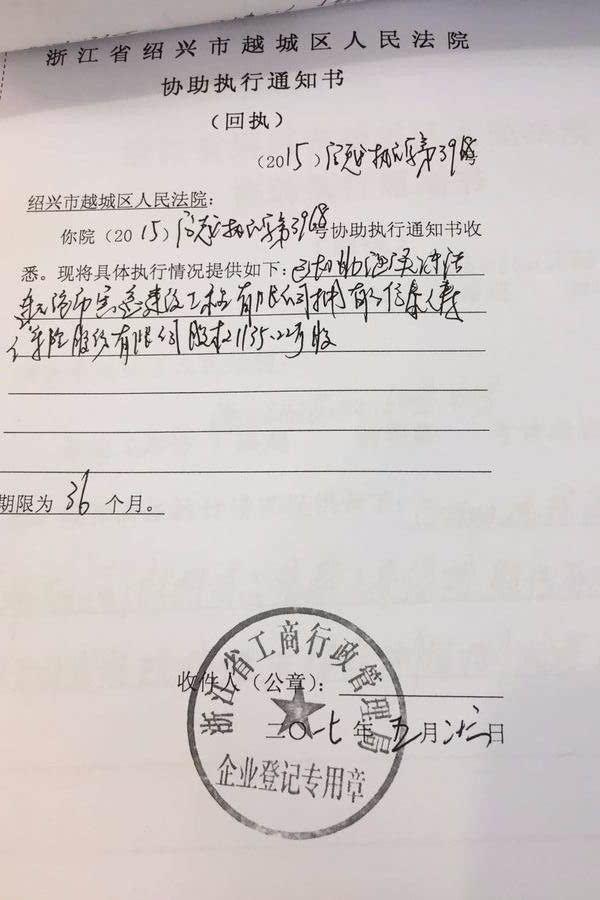 浙江省绍兴市越城区人民法院
协助执行通知书
（回执）
（2015）绍越执民字第3968号
绍兴市越城区人民法院：
你院（2015）绍越执民字第3968号协助执行通知书收
悉。现将具体执行情况提供如下：已协助
建设工程有限公司持有的信泰人寿
保险股份有限公司股权1135.22万股
期限为 36 个月。
收件人（公章）：
二〇一七年五月廿六日
浙江省工商行政管理局
企业登记专用章